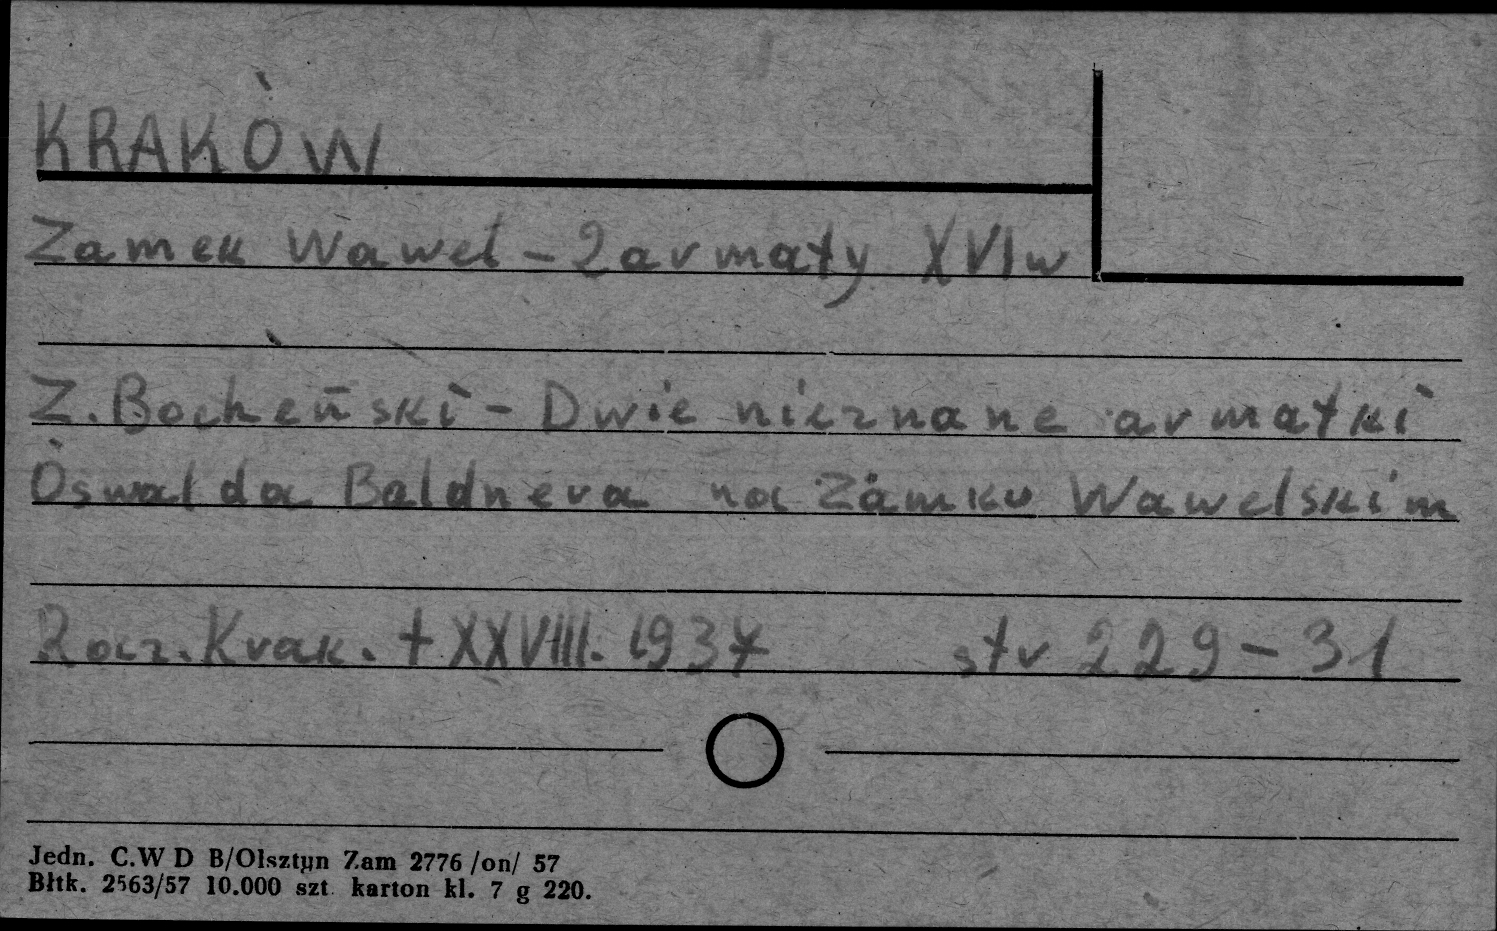 KRAKÓW
Zamek Wawel - 2 armaty XVI w
Z. Bocheński - Dwie nieznane armatki
Oswalda Baldnera na Zamku Wawelskim
Rocz. Krak. t XXVIII. 1937 str 229-31
Jedn. C.W D B/Olsztyn Zam 2776 /on/ 57
Błtk. 2563/57 10.000 szt. karton kl. 7 g 220.